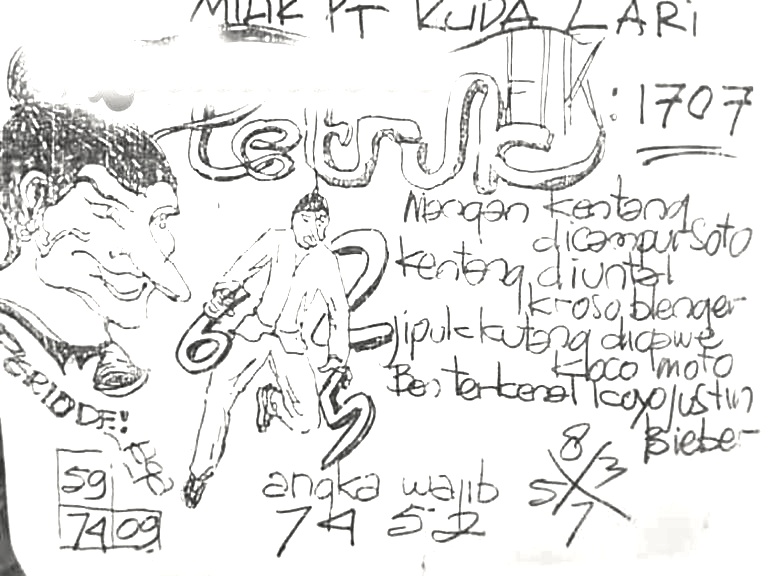 MILIK PT KUDA LARI
Petruk : 1707
Mangan kentang
dicampur soto
kentang diuntal
kroso blenger
jipuk kutang digawe
koco moto
Ben terkenal koyo justin
Bieber
6 2 5
PERIODE!
59
74 09
angka wajib
74 52
8
5 3
7